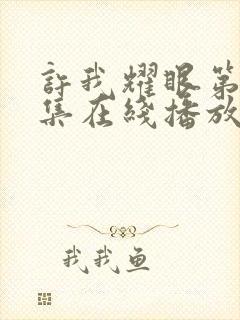 許我耀眼第
集在綫播放
我我鱼